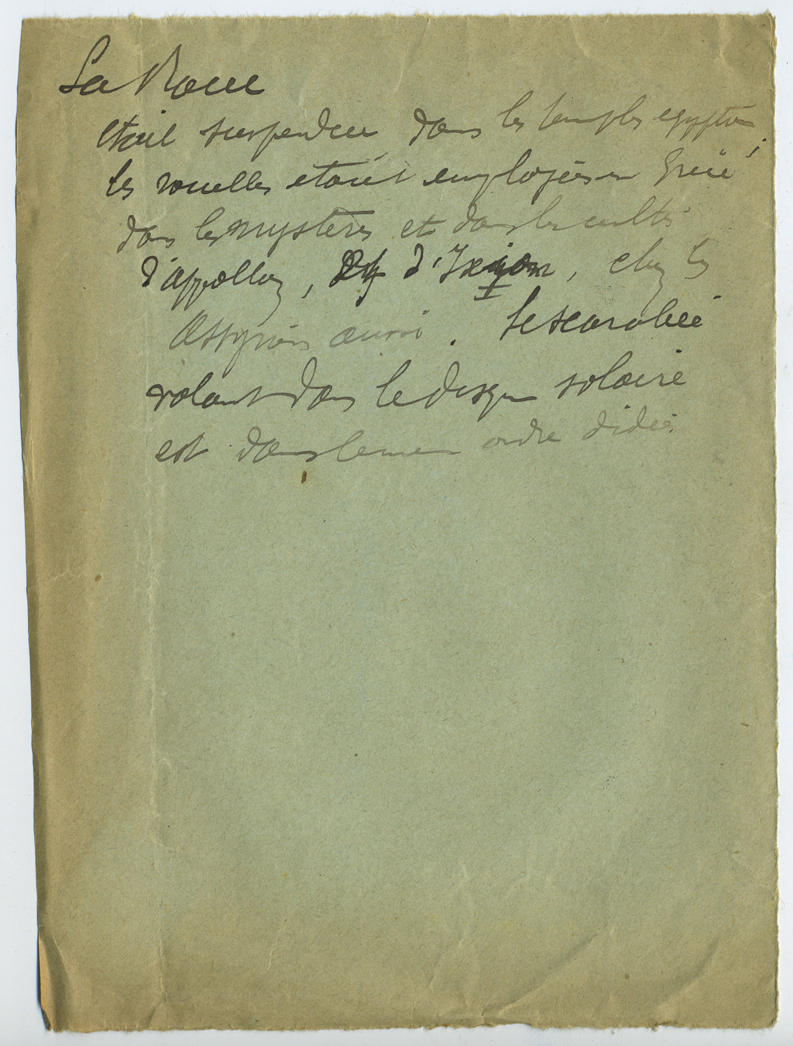 La Roue
etait suspendue dans les temples egyptiens
les rouelles etaient employées en Grèce
dans les mystères et dans les cultes
d'Appollon, d'Ixion, chez les
Assyriens aussi. Le scarabée
volant dans le disque solaire
est dans le meme ordre d'idées